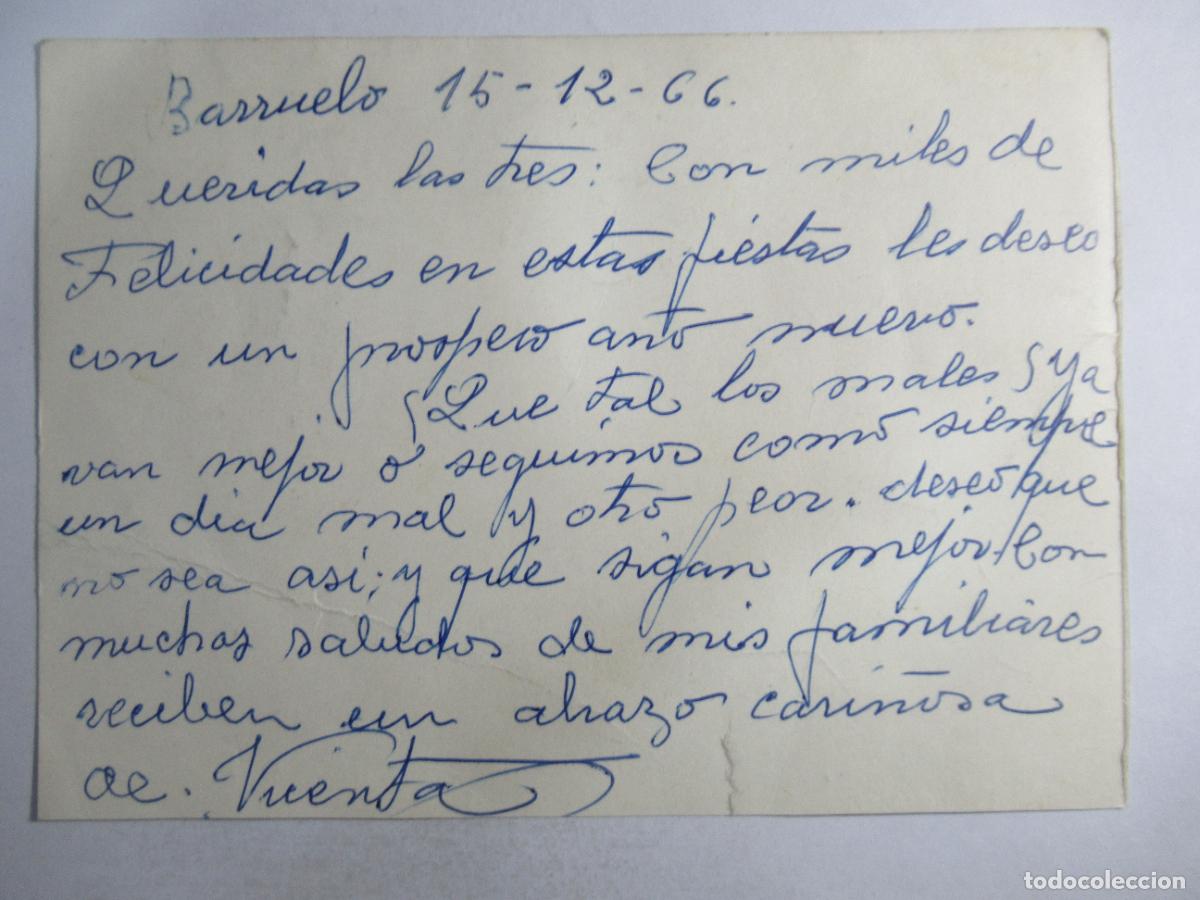 Barruelo 15-12-66.
Queridas las tres: Con miles de
Felicidades en estas fiéstas les deseo
con un prospero año nuevo.
¿Que tal los males ¿ya
van mejor o seguimos como siempre
un dia mal y otro peor. deseo que
no sea asi; y que sigan mejor. Con
muchos saludos de mis familiares
reciben un abrazo cariñosa
de.
todocoleccion